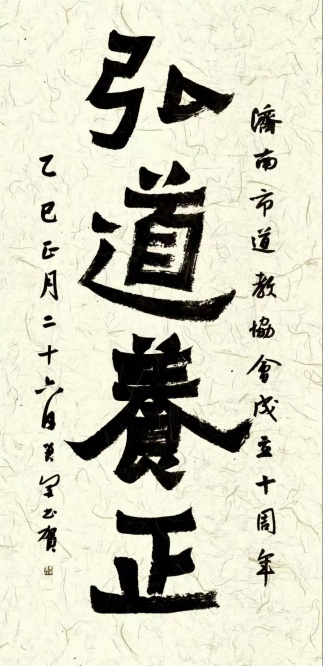 濟南市道教協會成立十周年
弘道養正
乙巳正月二十六日
賀